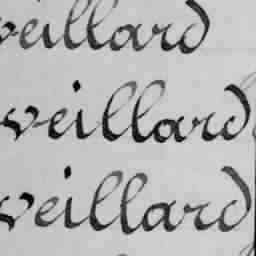 veillard
veillard
veillard